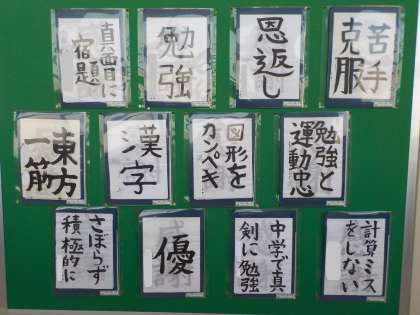 真面目に
宿題
勉強
恩返し
苦手
克服
東方
一筋
漢字
図形を
カンペキ
勉強と
運動忠
さぼらず
積極的に
優
中学で真
剣に勉強
計算ミス
をしない